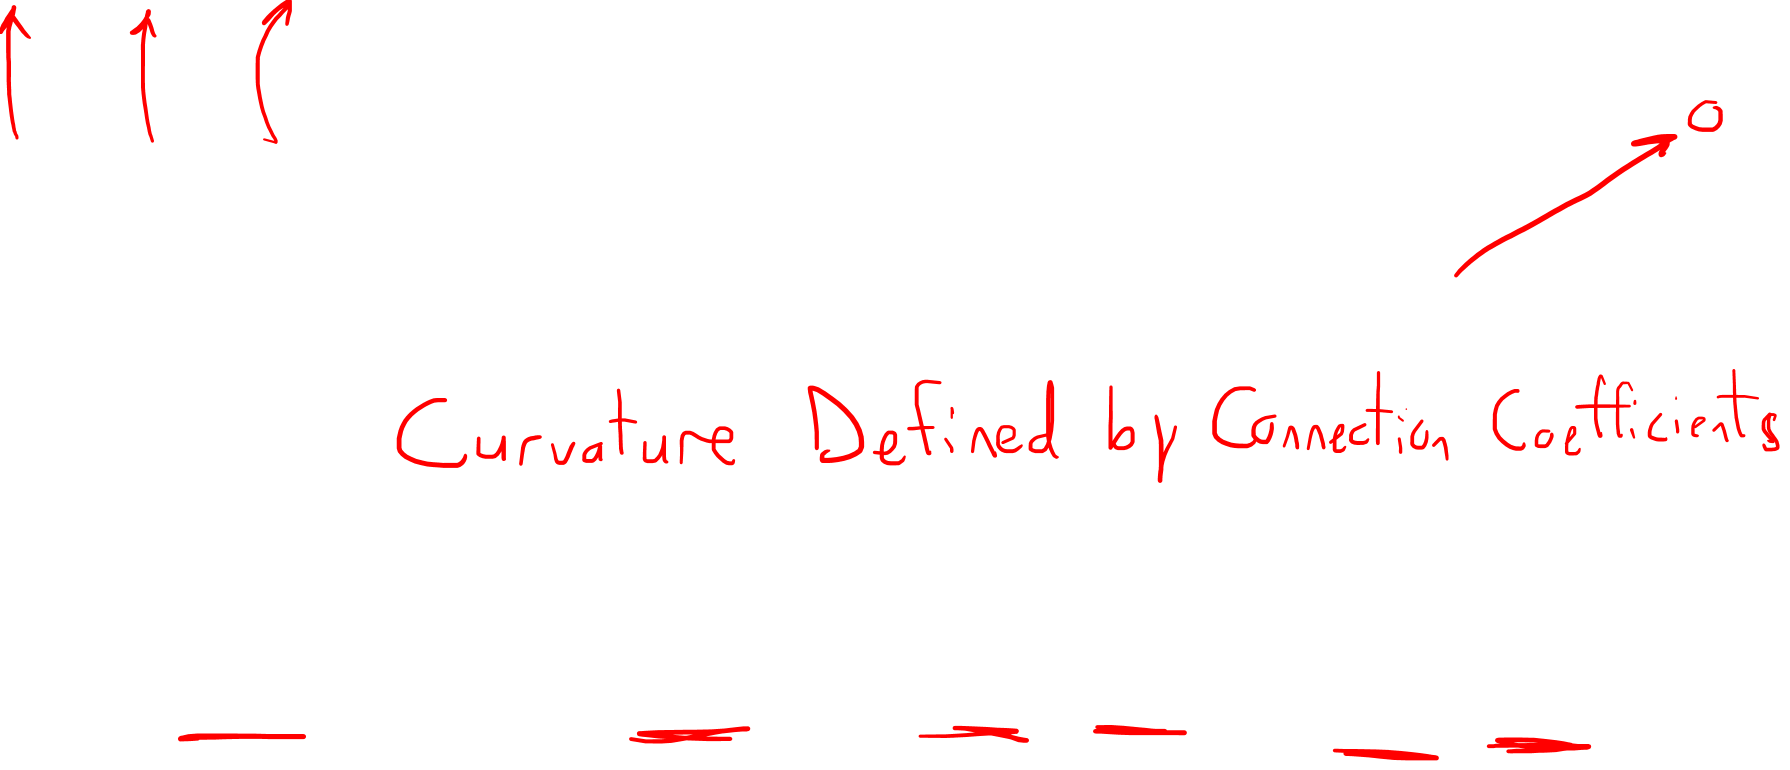 Curvature Defined by Connection Coefficients